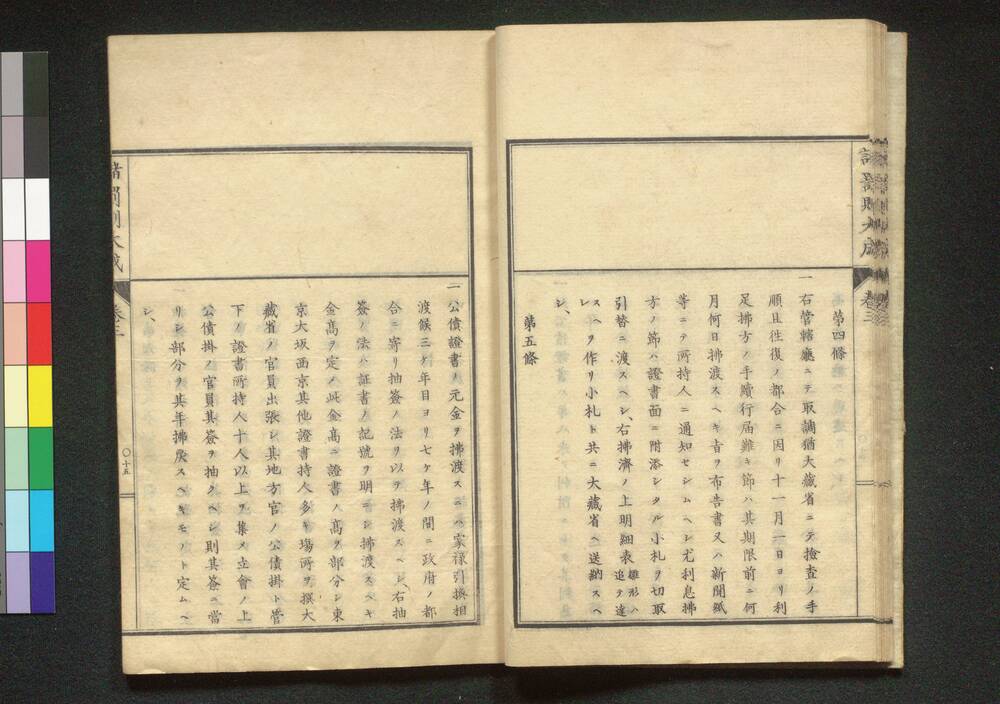 第四條
一 右管轄廳ニテ取調猶大藏省ニテ檢査ノ手
順且往復ノ都合ニ因リ十一月一日ヨリ利
足拂方ノ手續行届難キ節ハ其期限前ニ何
月何日拂渡スヘキ旨ヲ布告書又ハ新聞紙
等ニテ所持人ニ通知セシムヘシ尤利息拂
方ノ節ハ證書面ニ附添シタル小札ヲ切取
引替ニ渡スヘシ、右拂濟ノ上明細表雛形ハ追テ達
スヘシヲ作リ小札ト共ニ大藏省ヘ送納スヘ
シ、
第五條
一 公債證書ノ元金ヲ拂渡スニハ家祿引換相
渡候三ケ年目ヨリ七ケ年ノ間ニ政府ノ都
合ニ寄リ抽簽ノ法ヲ以テ拂渡スベシ、右抽
簽ノ法ハ証書ノ記號ヲ明ニシ拂渡スベキ
金高ヲ定メ此金高ニ證書ノ高ヲ部分シ東
京大坂西京其他證書持人多キ場所ヲ撰大
藏省ノ官員出張シ其地方官ノ公債掛ト管
下ノ證書所持人十人以上ヲ集メ立會ノ上
公債掛ノ官員其簽ヲ抽クヘシ則其簽ニ當
リシ部分ヲ其年拂戻スヘキモノト定ムヘ
シ、
卷三
〇十五